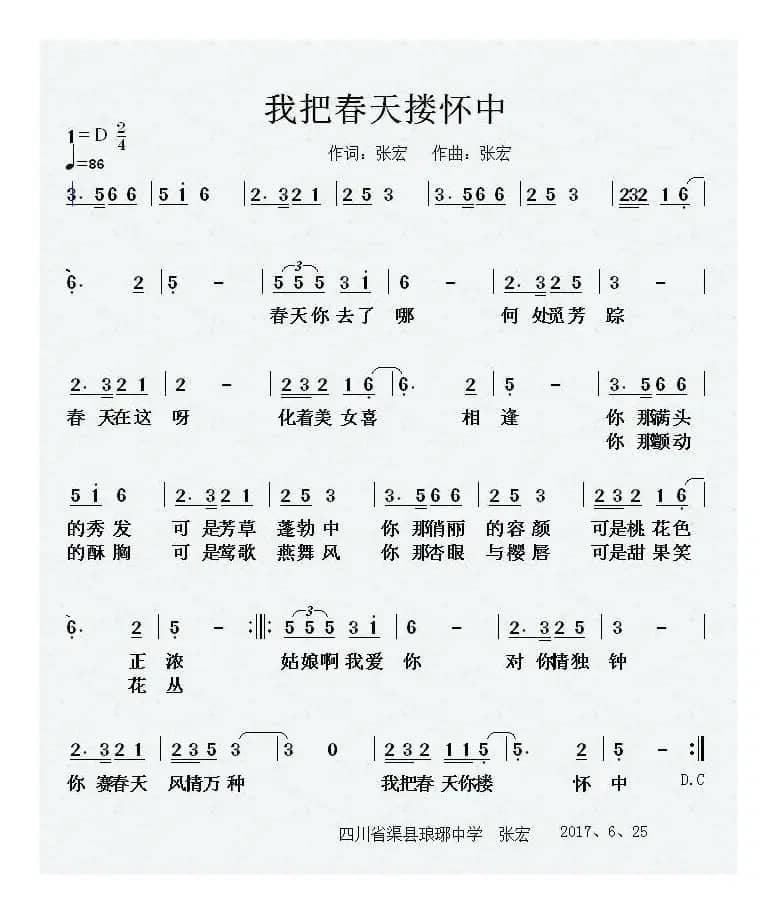 我把春天搂怀中
1=D 2/4
作词：张宏 作曲：张宏
♩=86
3. 5 6 6 | 5 1 6 | 2. 3 2 1 | 2 5 3 | 3. 5 6 6 | 2 5 3 | 2 3 2 1 6 |
6. 2 | 5 - | 5 5 5 3 1 | 6 - | 2. 3 2 5 | 3 - |
春天你去了哪 何处觅芳踪
2. 3 2 1 | 2 - | 2 3 2 1 6 | 6. 2 | 5 - | 3. 5 6 6 |
春天在这呀 化着美女喜 相逢 你那满头
你那颤动
5 1 6 | 2. 3 2 1 | 2 5 3 | 3. 5 6 6 | 2 5 3 | 2 3 2 1 6 |
的秀发 可是芳草 蓬勃中 你那俏丽 的容颜 可是桃花色
的酥胸 可是莺歌 燕舞风 你那杏眼 与樱唇 可是甜果笑
6. 2 | 5 - :||: 5 5 5 3 1 | 6 - | 2. 3 2 5 | 3 - |
正浓 姑娘啊我爱你 对你情独钟
花丛
2. 3 2 1 | 2 3 5 3 | 3 0 | 2 3 2 1 1 5 | 5. 2 | 5 - :||
你赛春天 风情万种 我把春天你搂 怀中 D.C
四川省渠县琅琊中学 张宏 2017、6、25